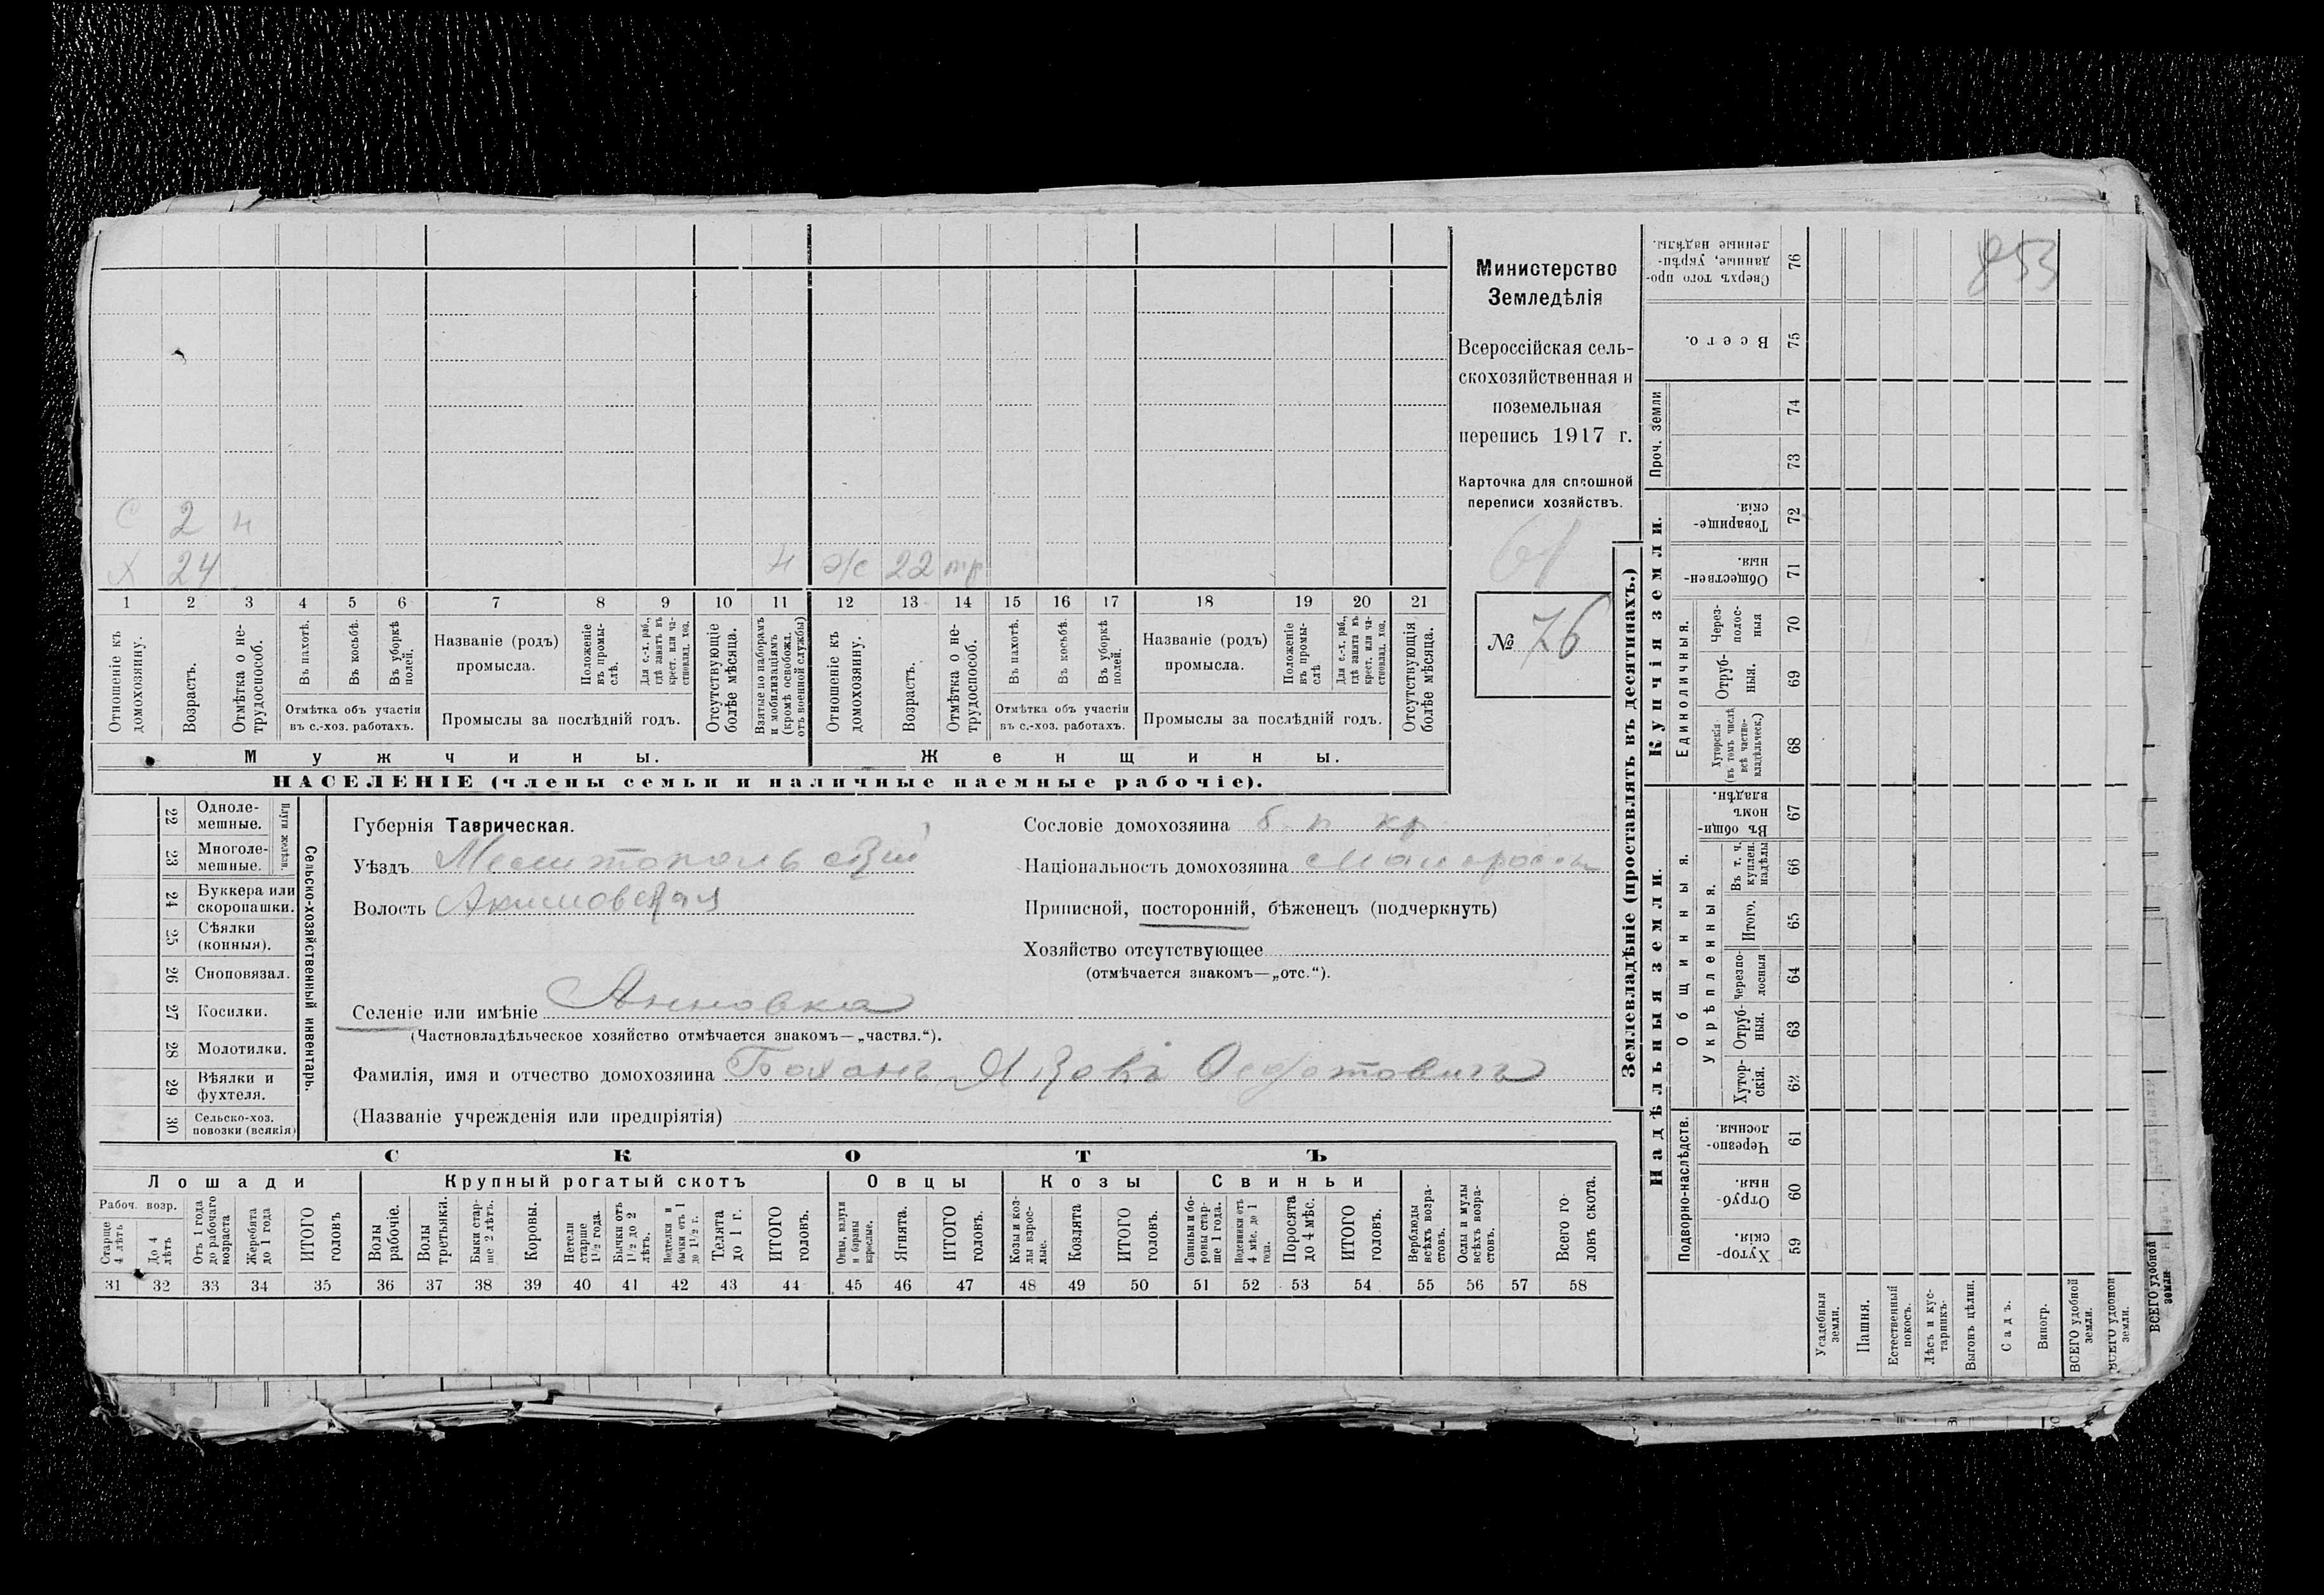 853
Министерство
Земледѣлія
Всероссійская сель-
скохозяйственная и
поземельная
перепись 1917 г.
Карточка для сплошной
переписи хозяйствъ.
№ 76
С 2 н
Х 24 н ж 22 тр
1 2 3 4 5 6 7 8 9 10 11 12 13 14 15 16 17 18 19 20 21
Отношеніе къ домохозяину.
Возрастъ.
Отмѣтка о не-трудоспособ.
Въ пахотѣ.
Въ косьбѣ.
Въ уборкѣ полей.
Отмѣтка объ участіи
въ с.-хоз. работахъ.
Названіе (родъ)
промысла.
Положеніе въ промы-слѣ.
Для с.-х. раб., гдѣ занятъ въ крест. или ча-стновлад. хоз.
Промыслы за послѣдній годъ.
Отсутствующіе болѣе мѣсяца.
Взятые по наборамъ и мобилизаціямъ (кромѣ освобожд. отъ военной службы)
Отношеніе къ домохозяину.
Возрастъ.
Отмѣтка о не-трудоспособ.
Въ пахотѣ.
Въ косьбѣ.
Въ уборкѣ полей.
Отмѣтка объ участіи
въ с.-хоз. работахъ.
Названіе (родъ)
промысла.
Положеніе въ промы-слѣ
Для с.-х. раб., гдѣ занята въ крест. или ча-стновлад. хоз.
Промыслы за послѣдній годъ.
Отсутствующія болѣе мѣсяца.
Мужчины. Женщины.
НАСЕЛЕНІЕ (члены семьи и наличные наемные рабочіе).
Сельско-хозяйственный инвентарь.
Плуги желѣзн.
22 Одноле-мешные.
23 Многоле-мешные.
24 Буккера или скоропашки.
25 Сѣялки (конныя).
26 Сноповязал.
27 Косилки.
28 Молотилки.
29 Вѣялки и фухтеля.
30 Сельско-хоз. повозки (всякія)
Губернія Таврическая.
Уѣздъ Мелитопольскій
Волость Акимовская
Селеніе или имѣніе Анновка
(Частновладѣльческое хозяйство отмѣчается знакомъ—„частвл.“).
Фамилія, имя и отчество домохозяина Боханъ Яковъ Федотовичъ
(Названіе учрежденія или предпріятія)
Сословіе домохозяина б. п. кр
Національность домохозяина малоросс
Приписной, посторонній, бѣженецъ (подчеркнуть)
Хозяйство отсутствующее
(отмѣчается знакомъ—„отс.“).
СКОТЪ
Лошади Крупный рогатый скотъ Овцы Козы Свиньи
Рабоч. возр.
Старше 4 лѣтъ
До 4 лѣтъ
Отъ 1 года до рабочаго возраста
Жеребята до 1 года
ИТОГО головъ
Волы рабочіе.
Волы третьяки.
Быки стар-ше 2 лѣтъ.
Коровы.
Нетели старше 1½ года.
Бычки отъ 1½ до 2 лѣтъ.
Подтелки и бычки отъ 1 до 1½ г.
Телята до 1 г.
ИТОГО головъ.
Овцы, валухи и бараны взрослые.
Ягнята.
ИТОГО головъ.
Козы и коз-лы взрос-лые.
Козлята
ИТОГО головъ.
Свиньи и бо-ровы стар-ше 1 года.
Подсвинки отъ 4 мѣс. до 1 года.
Поросята до 4 мѣс.
ИТОГО головъ.
Верблюды всѣхъ возра-стовъ.
Ослы и мулы всѣхъ возра-стовъ.
Всего го-ловъ скота.
31 32 33 34 35 36 37 38 39 40 41 42 43 44 45 46 47 48 49 50 51 52 53 54 55 56 57 58
Землевладѣніе (проставлять въ десятинахъ.)
Сверхъ того про-данные, укрѣп-ленные надѣлы. 76
Всего. 75
Проч. земли
74
73
Купчія земли.
Товарище-скія. 72
Обществен-ныя. 71
Единоличныя.
Через-полос-ныя 70
Отруб-ныя. 69
Хуторскія (въ томъ числѣ всѣ частно-владѣльческ.) 68
Надѣльныя земли.
Общинныя.
Въ общин-номъ владѣн. 67
Укрѣпленныя.
Въ т. ч. куплен. надѣлы 66
Итого. 65
Черезпо-лосныя 64
Отруб-ныя. 63
Хутор-скія. 62
Подворно-наслѣдств.
Черезпо-лосныя. 61
Отруб-ныя. 60
Хутор-скія. 59
Усадебныя земли.
Пашня.
Естественный покосъ.
Лѣсъ и кус-тарникъ.
Выгонъ цѣлин.
Садъ.
Виногр.
ВСЕГО удобной земли.
ВСЕГО удобной земли.
ВСЕГО удобной земли